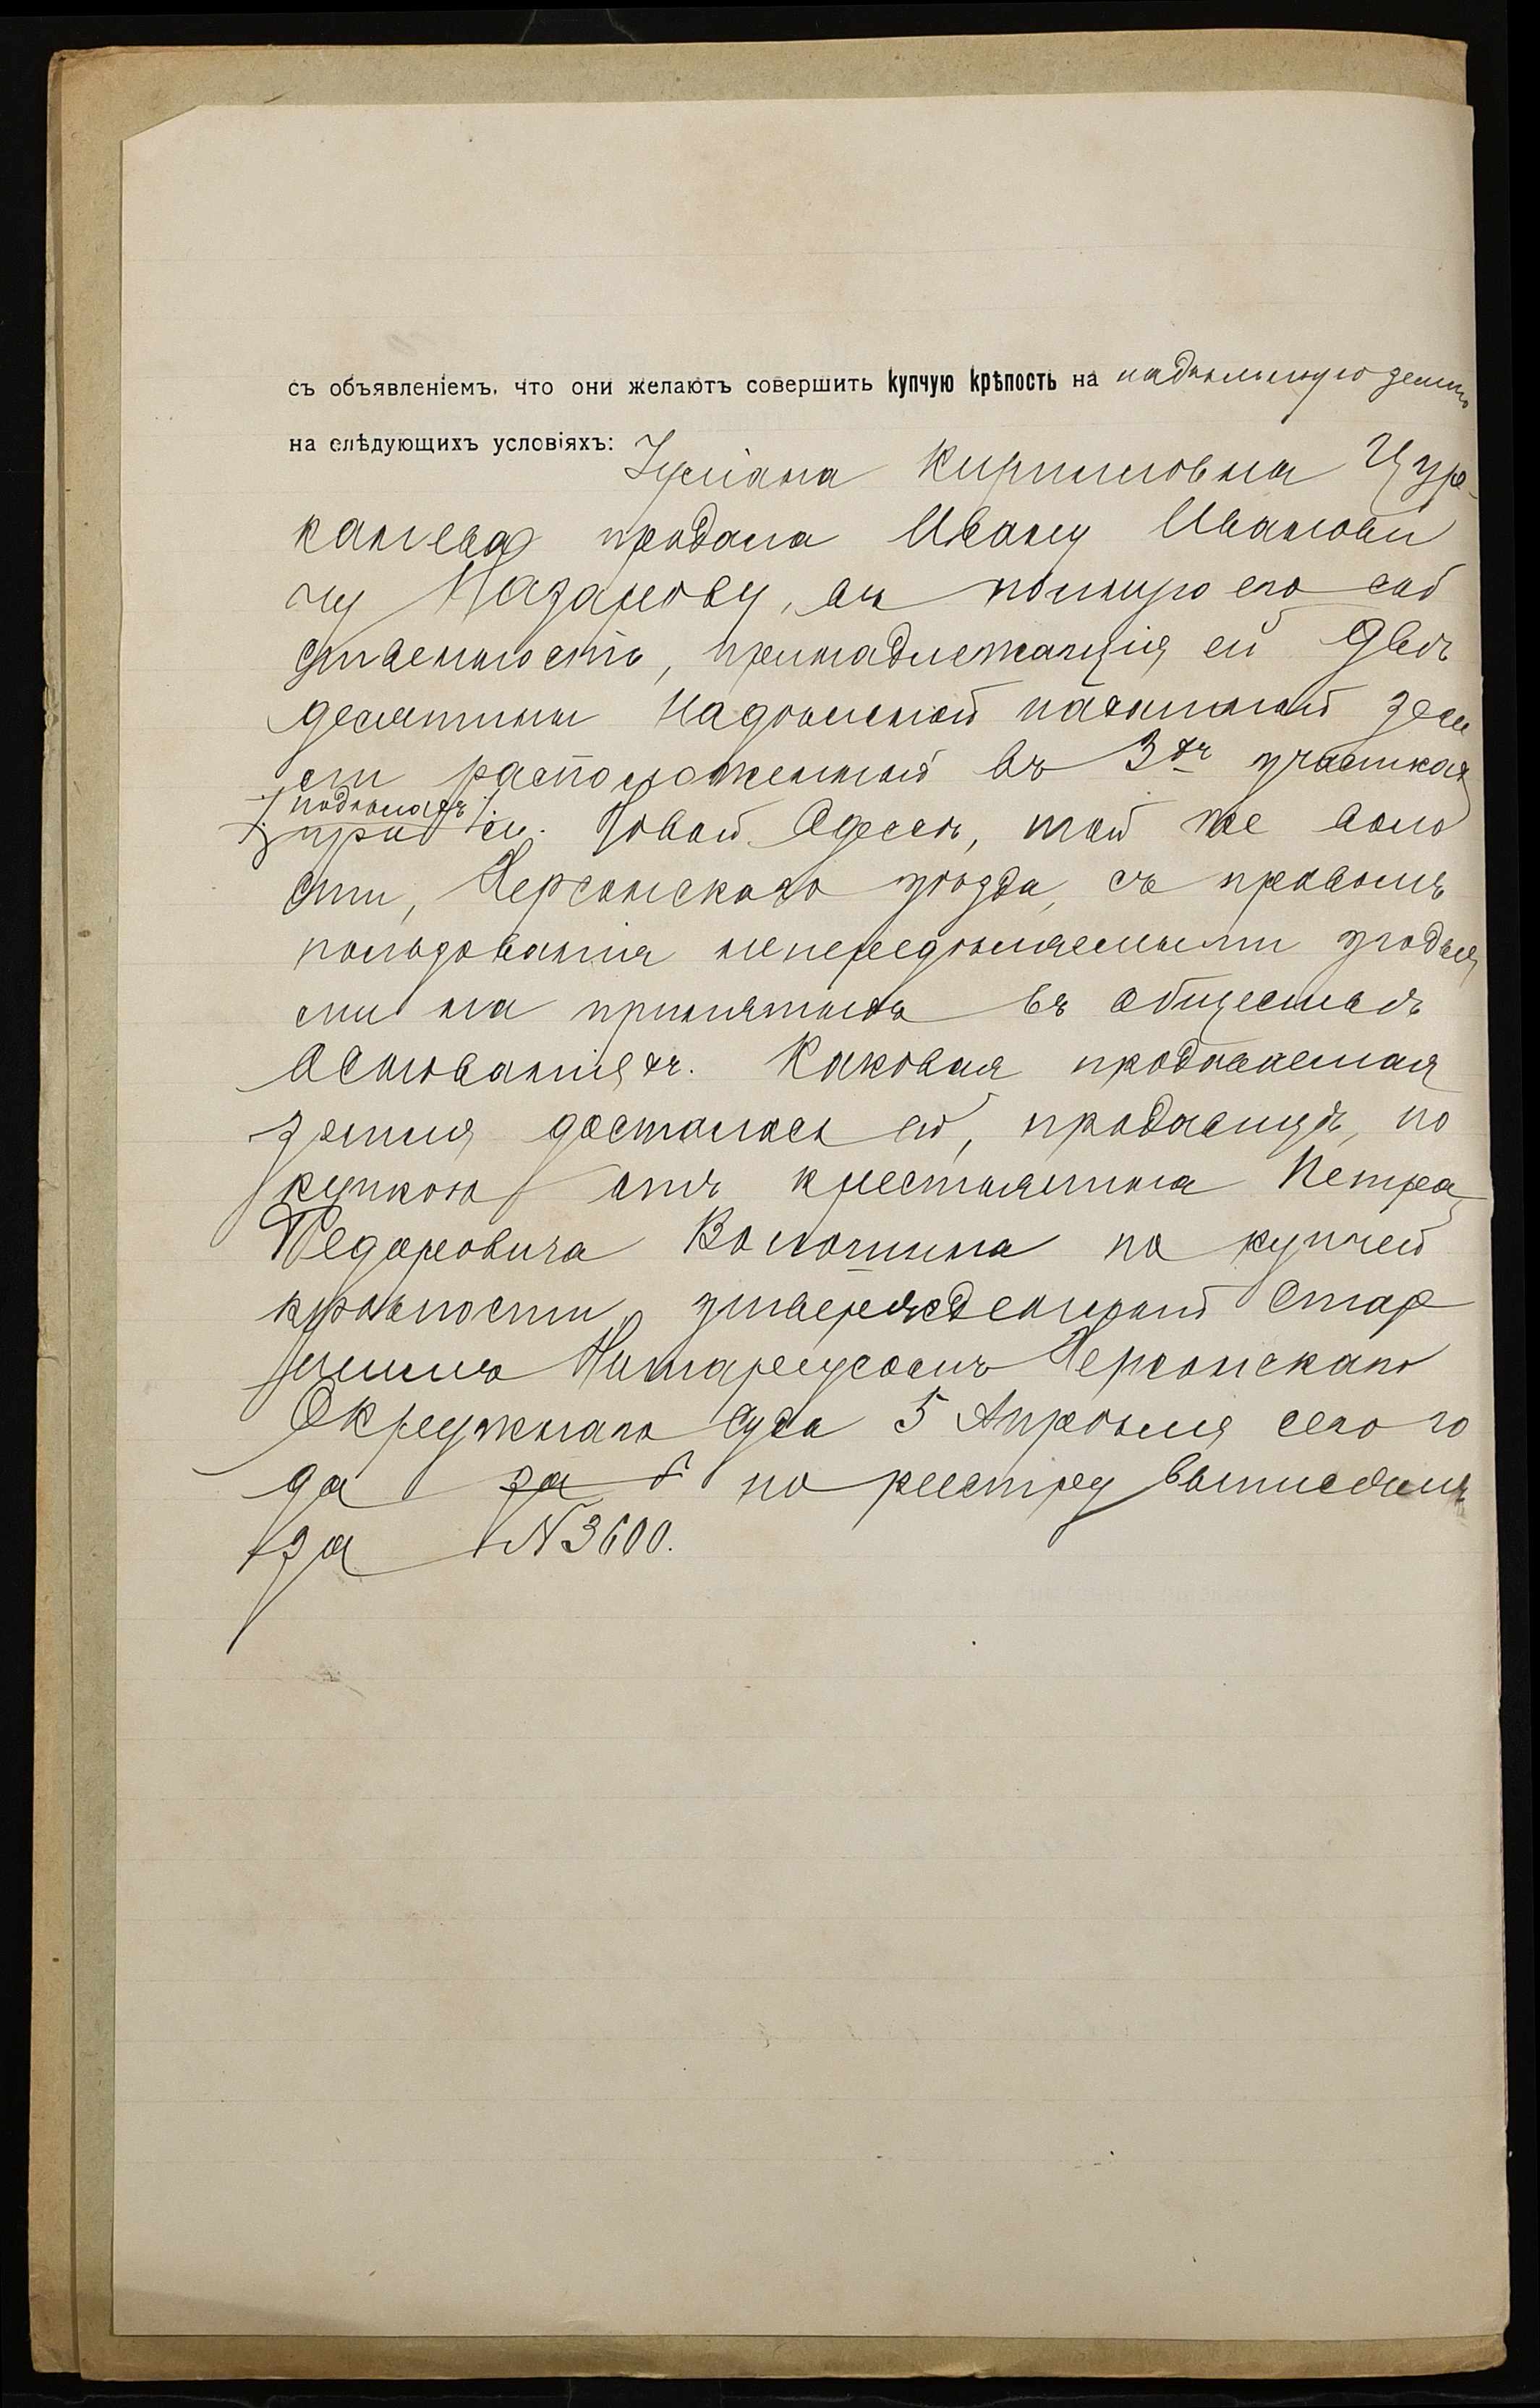 съ объявленіемъ, что они желаютъ совершить купчую крѣпость на надѣльную землю
на слѣдующихъ условіяхъ: Іуліана Кирилловна Цуре-
канева продала Ивану Иванови
чу Назарову, въ полную его соб
ственность, принадлежащія ей двѣ
десятины надѣльной пахатной зем
ли расположенной въ 3хъ участкахъ
надѣлахъ
при м. Новой Одессѣ, той же воло
сти, Херсонскаго уѣзда, съ правомъ
пользованія непередѣляемыми угодья
ми на принятыхъ въ обществѣ
основаніяхъ. Каковая продаваемая
земля досталась ей, продавицѣ, по
купкою отъ крестьянина Петра
Федоровича Волошина по купчей
крѣпости, утвержденной Стар
шимъ Нотаріусомъ Херсонскаго
Окружнаго Суда 5 Апрѣля сего го
да за № по реестру выписямъ
за № 3600.